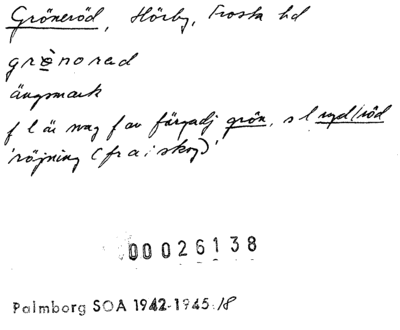 Gröneröd, Hörby, Frosta hd
grønorad
ängsmark
f l är nog f av färgadj grön, s l ryd/röd
'röjning (fr a i skog)'
00026138
Palmborg SOA 1942-1945/8